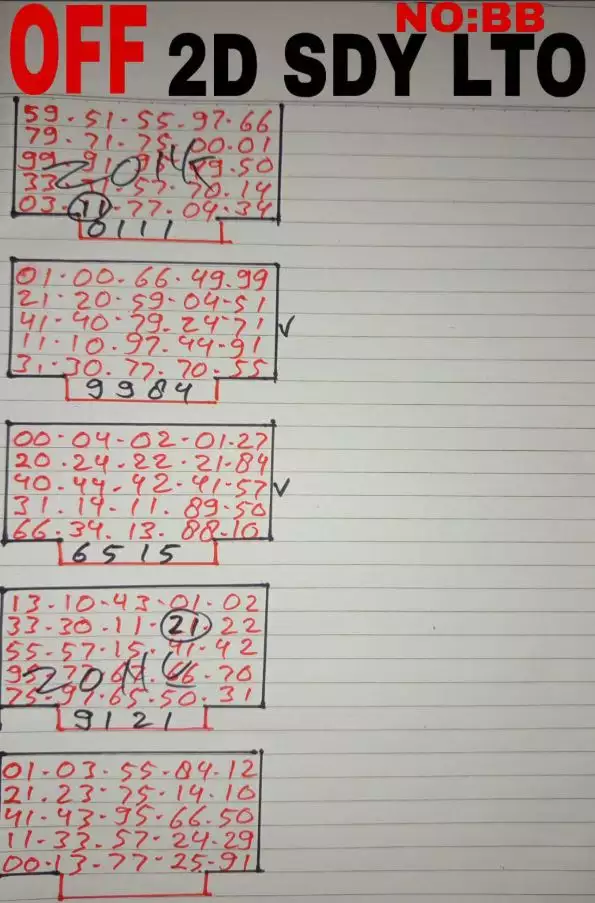 NO:BB
OFF 2D SDY LTO
59.51.55.97.66
79.71.75.00.01
99.91.95.49.50
33.31.57.70.14
03.11.77.04.34
0111
01.00.66.49.99
21.20.59.04.51
41.40.79.24.71
11.10.97.44.91
31.30.77.70.55
9984
00.04.02.01.27
20.24.22.21.84
40.44.42.41.57
31.14.11.89.50
66.34.13.88.10
6515
13.10.43.01.02
33.30.11.21.22
55.57.15.41.42
66.70
75.97.65.50.31
9121
01.03.55.84.12
21.23.75.14.10
41.43.95.66.50
11.33.57.24.29
00.13.77.25.91